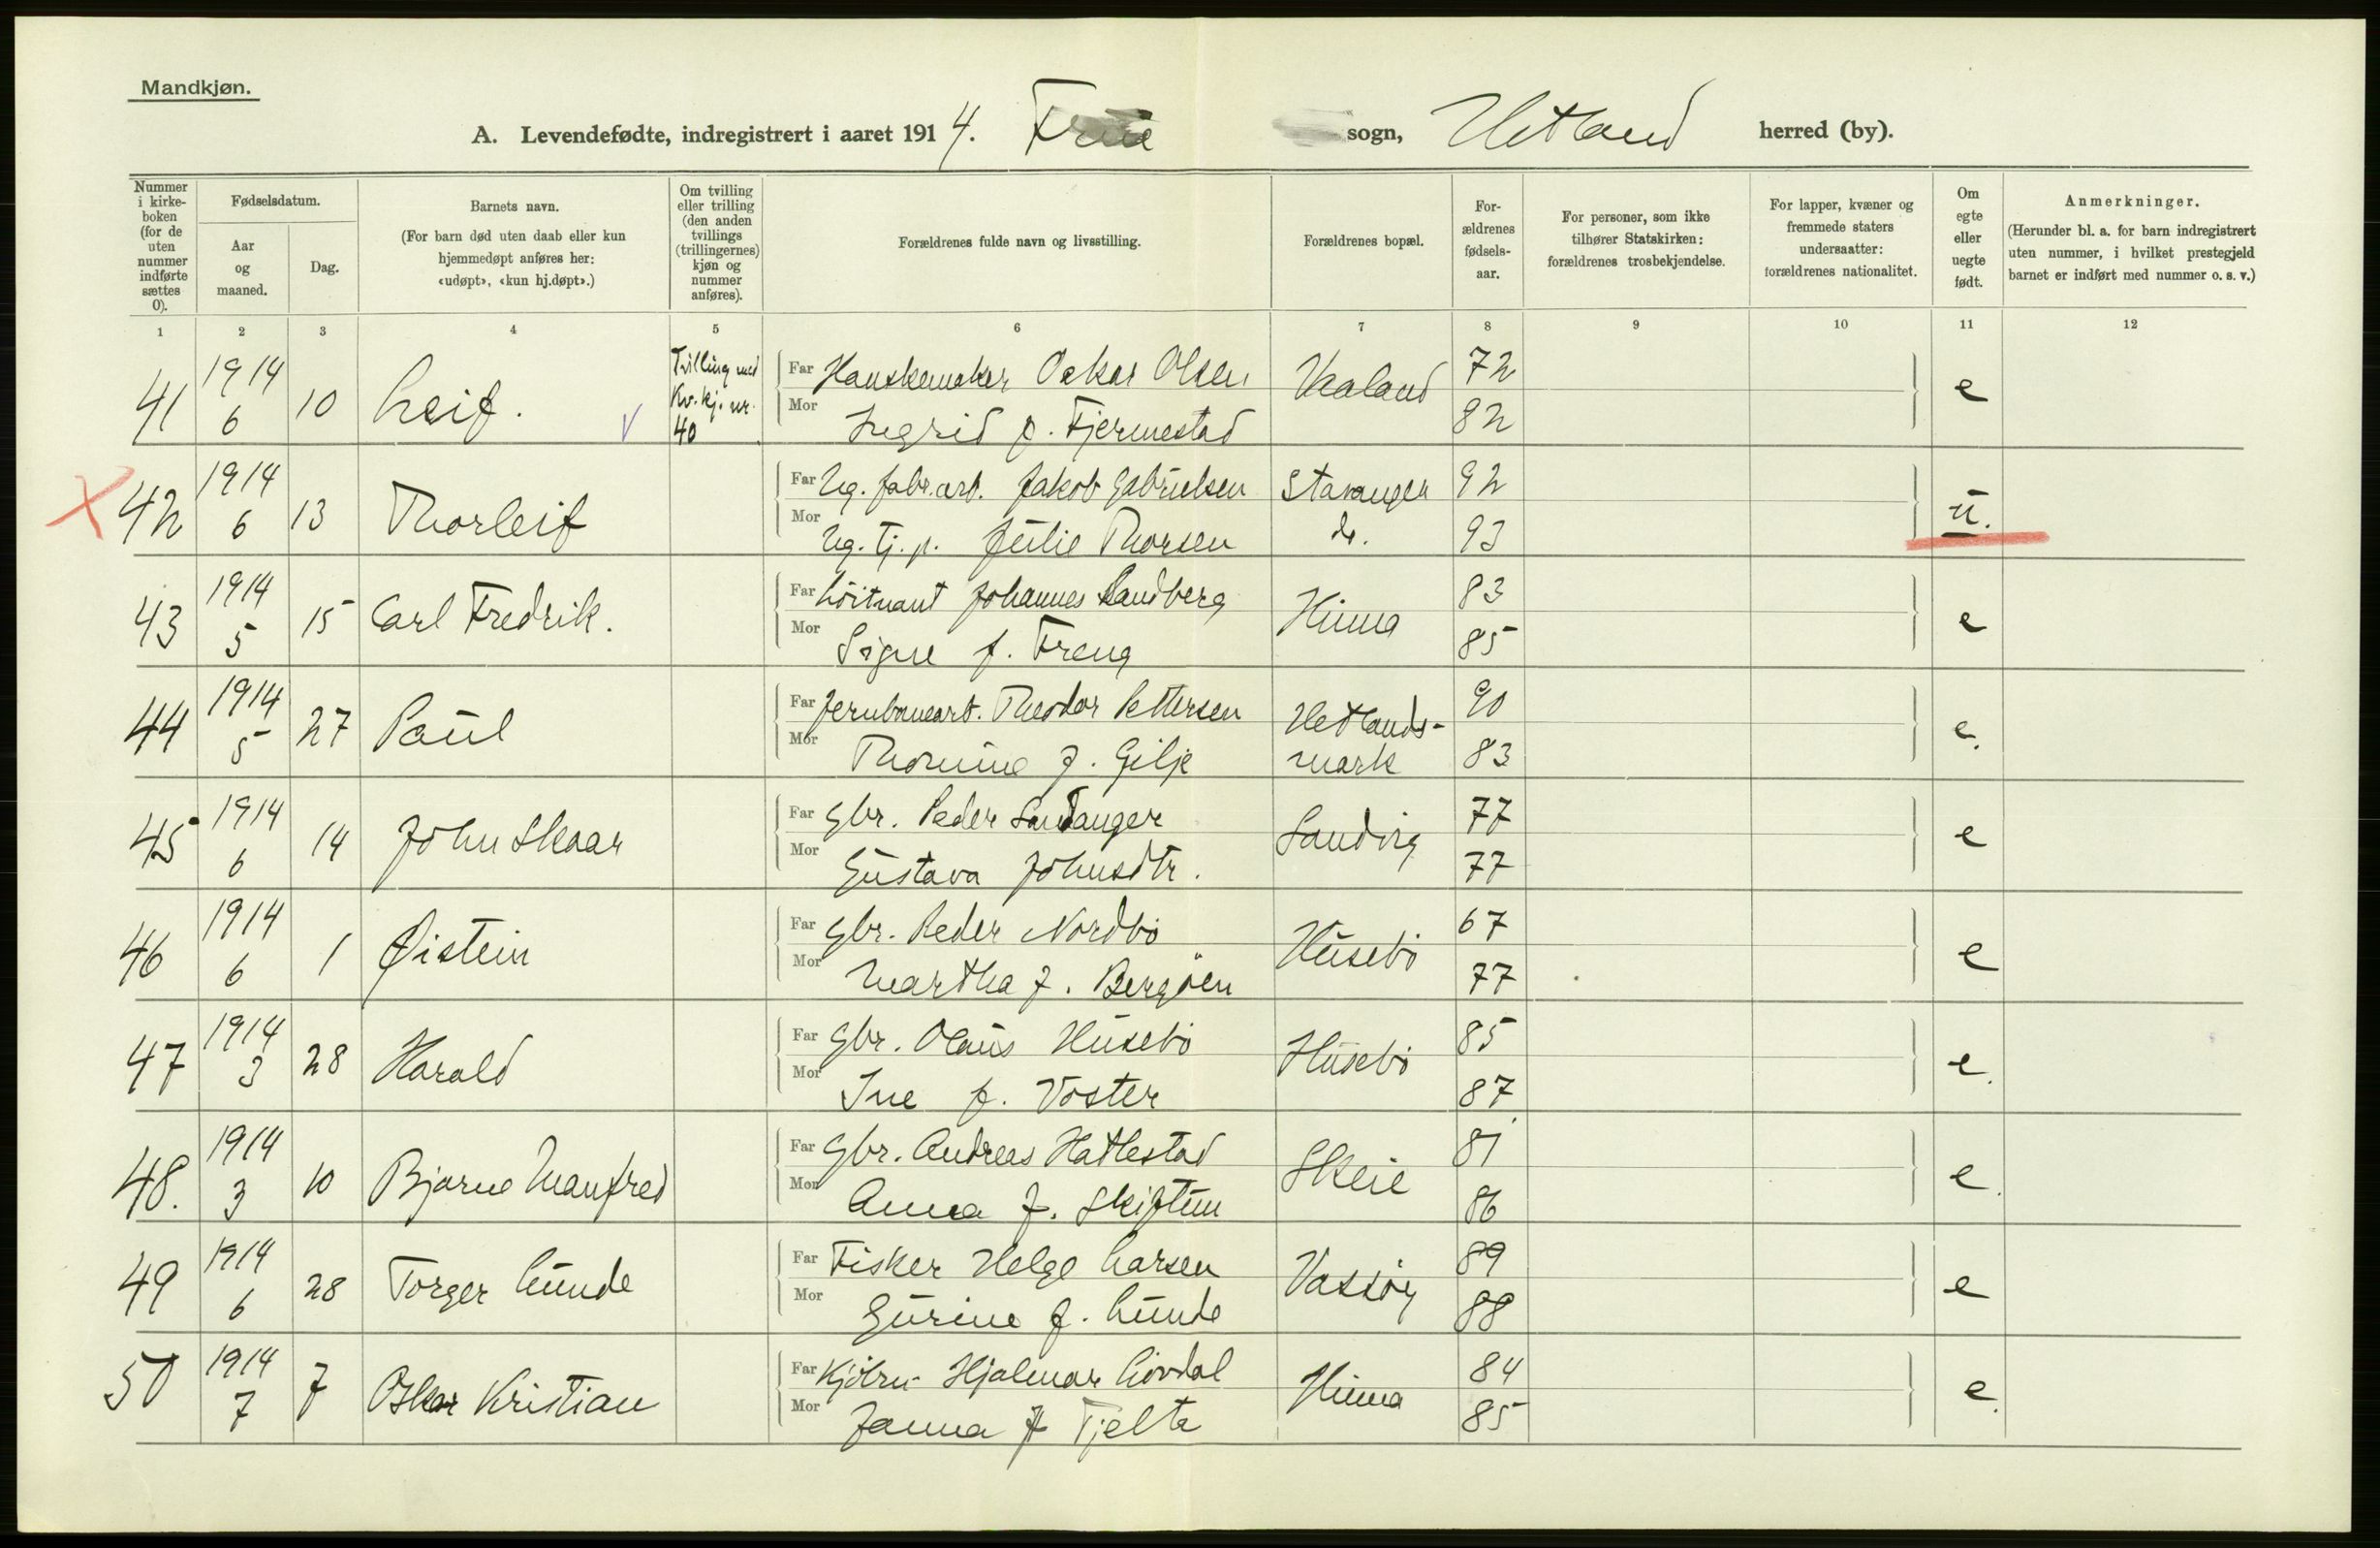 Mandkjøn.
A. Levendefødte, indregistrert i aaret 1914. Frue sogn, Hetland herred (by).
Nummer i kirkeboken (for de uten nummer indførte sættes 0).
Fødselsdatum.
Aar og maaned.
Dag.
Barnets navn.
(For barn død uten daab eller kun hjemmedøpt anføres her: «udøpt», «kun hj.døpt».)
Om tvilling eller trilling (den anden tvillings (trillingernes) kjøn og nummer anføres).
Forældrenes fulde navn og livsstilling.
Forældrenes bopæl.
Forældrenes fødselsaar.
For personer, som ikke tilhører Statskirken: forældrenes trosbekjendelse.
For lapper, kvæner og fremmede staters undersaatter: forældrenes nationalitet.
Om egte eller uegte født.
Anmerkninger.
(Herunder bl. a. for barn indregistrert uten nummer, i hvilket prestegjeld barnet er indført med nummer o. s. v.)
1 2 3 4 5 6 7 8 9 10 11 12
41 1914 6 10 Leif. Tvilling med Kv.kj. nr. 40 Far Hanskemaker Oskar Olsen Vaaland 72 e
Mor Ingrid f. Fjermestad 82
42 1914 6 13 Thorleif Far Ug. fabr.arb. Jakob Gabrielsen Stavanger 92 u.
Mor Ug. tj.p. Julie Thorsen do. 93
43 1914 5 15 Carl Fredrik. Far Löitnant Johannes Sandberg Hinna 83 e
Mor Signe f. Freng 85
44 1914 5 27 Paul Far Jernbanearb. Theodor Pettersen Hetlands- 90 e.
Mor Thomine f. Gilje mark 83
45 1914 6 14 John Skaar Far Gbr. Peder Sandanger Sandvig 77 e
Mor Gustava Johnsdtr. 77
46 1914 6 1 Øistein Far Gbr. Peder Nordbö Husebö 67 e
Mor Martha f. Bergöen 77
47 1914 3 28 Harald Far Gbr. Olaus Husebö Husebö 85 e.
Mor Ine f. Voster 87
48. 1914 3 10 Bjarne Manfred Far Gbr. Andreas Hatlestad Skeie 81 e.
Mor Anna f. Skiftun 86
49 1914 6 28 Torger Lunde Far Fisker Helge Larsen Vassöy 89 e
Mor Gurine f. Lunde 88
50 1914 7 7 Oskar Kristian Far Kjöbm Hjalmar Lövdal Hinna 84 e.
Mor Janna f Tjelta 85